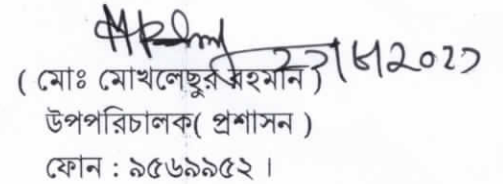 ( মোঃ মোখলেছুর রহমান )
উপপরিচালক( প্রশাসন )
ফোন : ৯৫৬৯৯৫২ ।